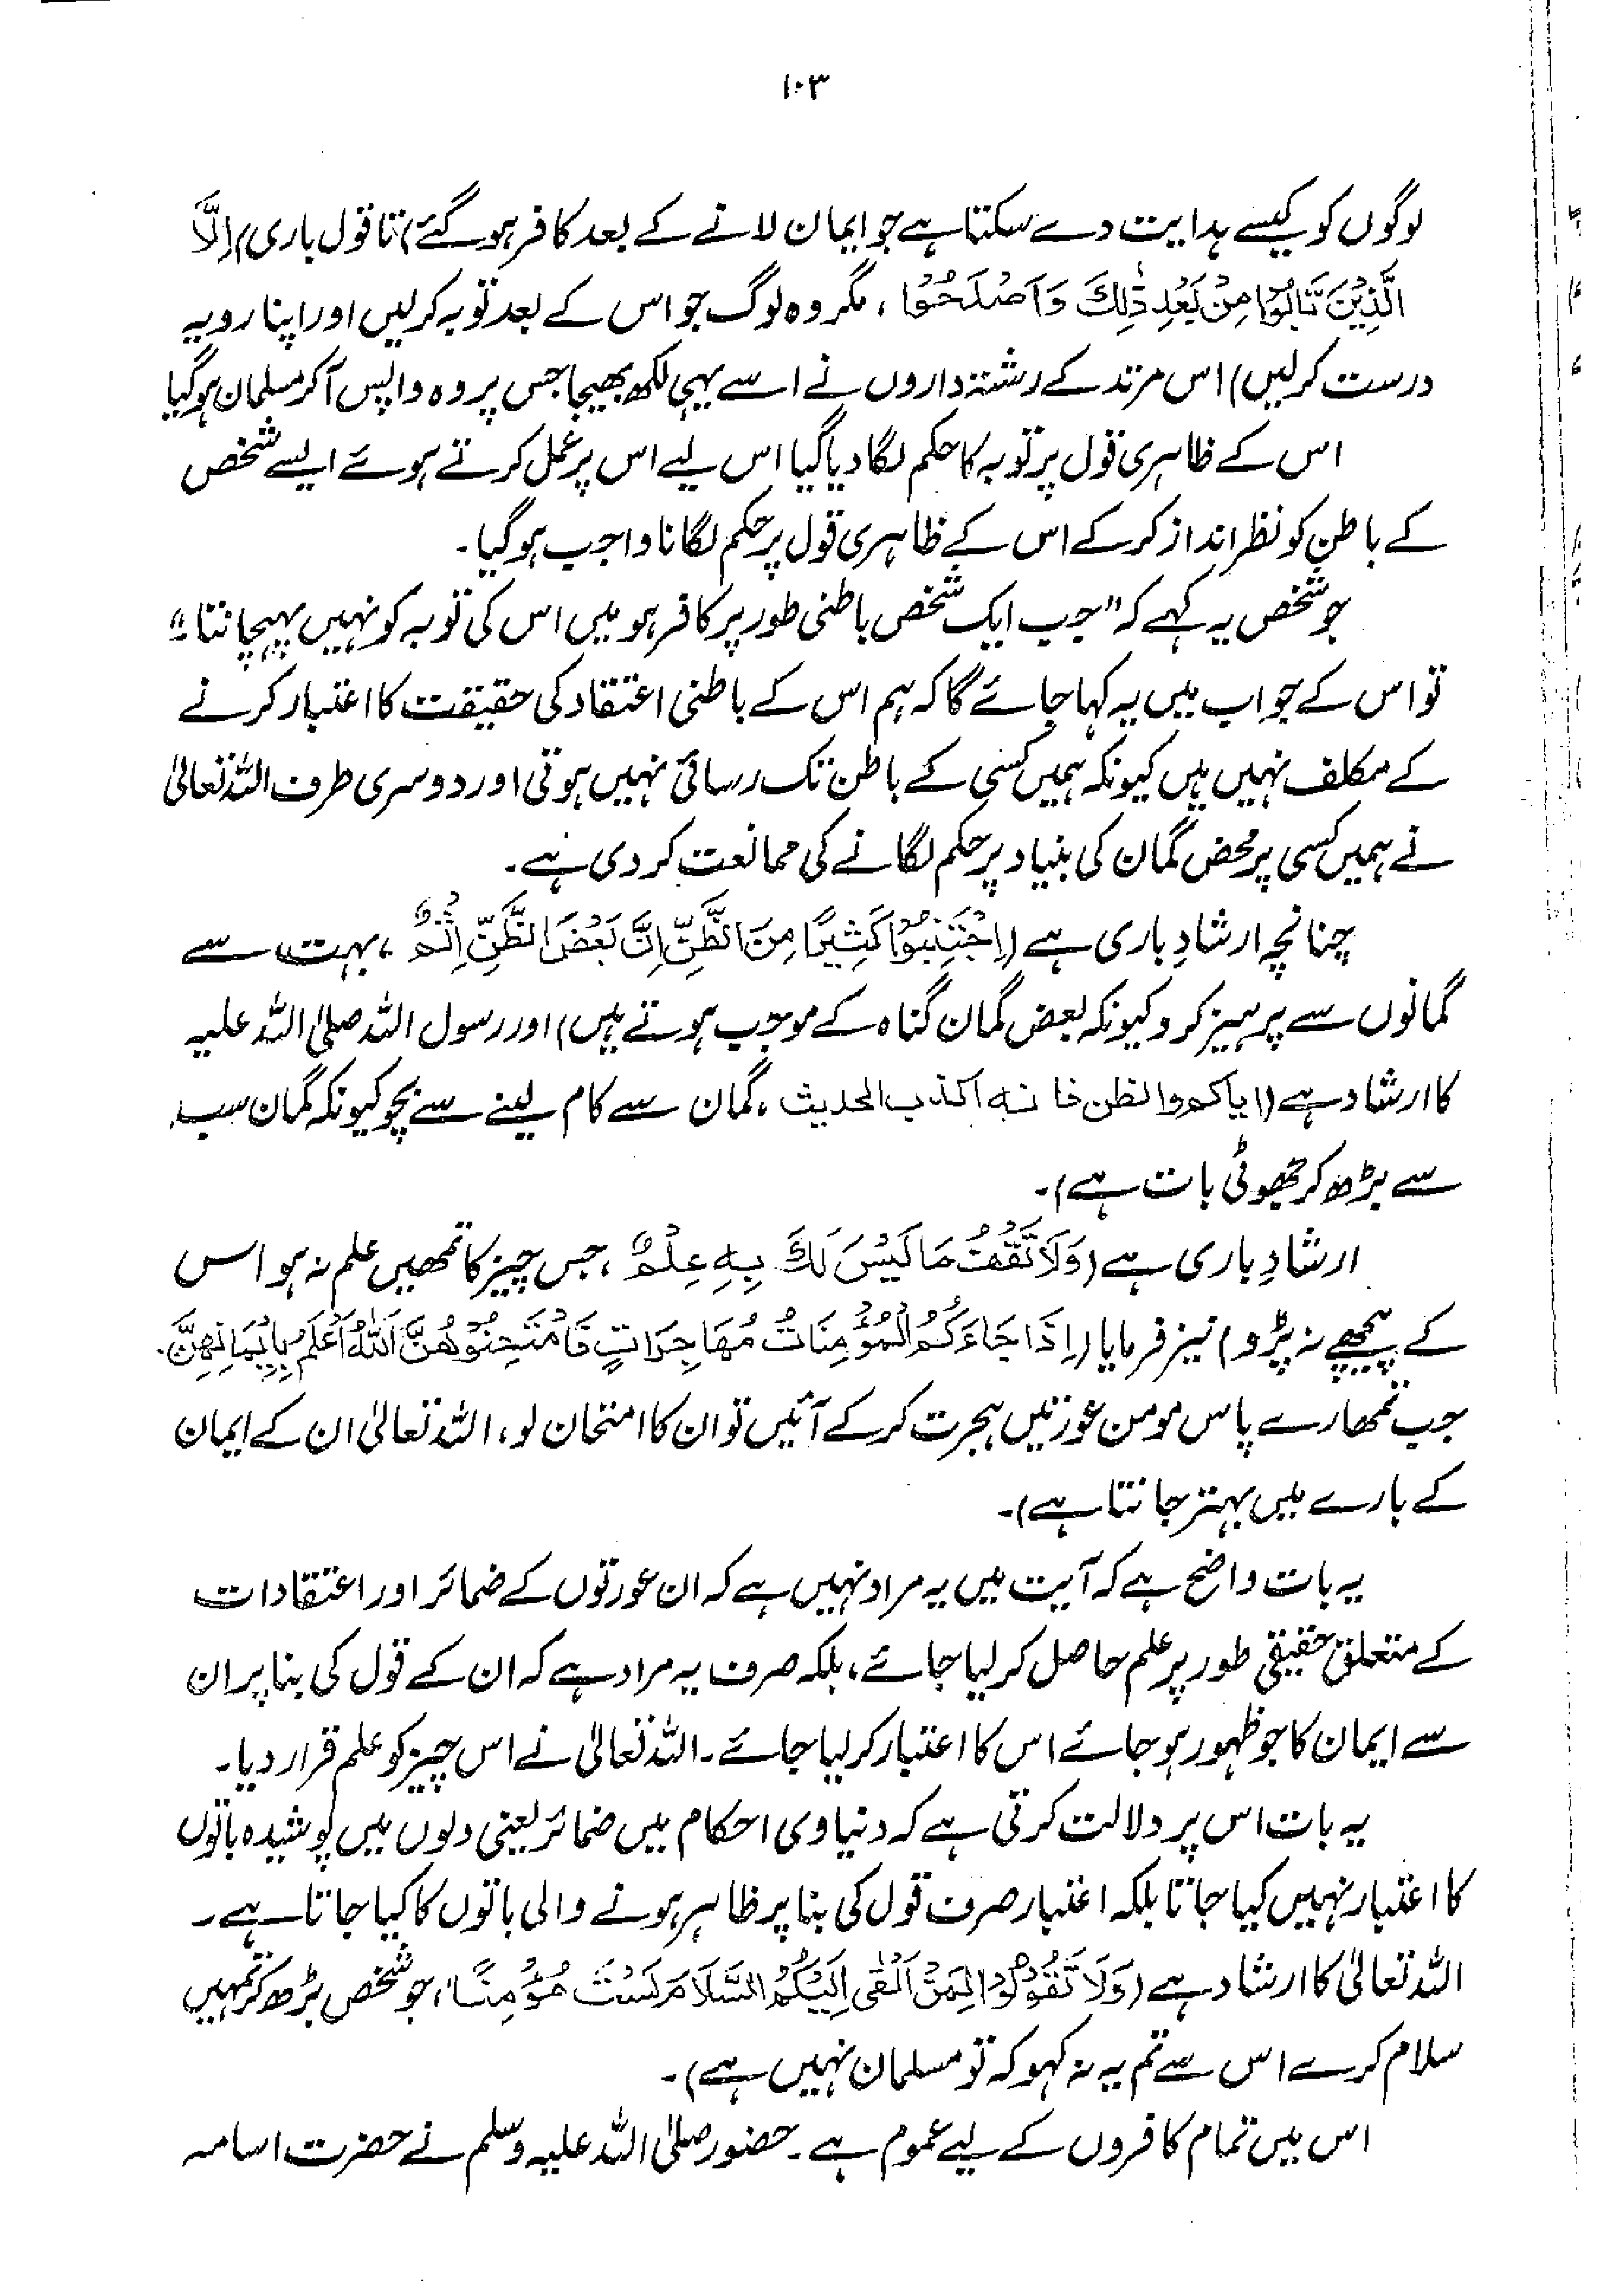 ۱۰۳
لوگوں کو کیسے ہدایت دے سکتا ہے جو ایمان لانے کے بعد کافر ہو گئے) تا قول باری (اِلَّا
الَّذِيْنَ تَابُوْا مِنْ بَعْدِ ذٰلِكَ وَاَصْلَحُوْا ، مگر وہ لوگ جو اس کے بعد توبہ کرلیں اور اپنا رویہ
درست کرلیں) اس مرتد کے رشتہ داروں نے اسے یہی لکھ بھیجا جس پر وہ واپس آکر مسلمان ہوگیا
اس کے ظاہری قول پر توبہ کا حکم لگا دیا گیا اس لیے اس پر عمل کرتے ہوئے ایسے شخص
کے باطن کو نظر انداز کرکے اس کے ظاہری قول پر حکم لگانا واجب ہوگیا۔
جو شخص یہ کہے کہ "جب ایک شخص باطنی طور پر کافر ہو میں اس کی توبہ کو نہیں پہچانتا۔"
تو اس کے جواب میں یہ کہا جائے گا کہ ہم اس کے باطنی اعتقاد کی حقیقت کا اعتبار کرنے
کے مکلف نہیں ہیں کیونکہ ہمیں کسی کے باطن تک رسائی نہیں ہوتی اور دوسری طرف اللہ تعالیٰ
نے ہمیں کسی پر محض گمان کی بنیاد پر حکم لگانے کی ممانعت کر دی ہے۔
چنانچہ ارشادِ باری ہے (اِجْتَنِبُوْا كَثِيْرًا مِنَ الظَّنِّ اِنَّ بَعْضَ الظَّنِّ اِثْمٌ ، بہت سے
گمانوں سے پرہیز کرو کیونکہ بعض گمان گناہ کے موجب ہوتے ہیں) اور رسول اللہ صلی اللہ علیہ
کا ارشاد ہے (ایاکم والظن فانہ اکذب الحدیث ، گمان سے کام لینے سے بچو کیونکہ گمان سب
سے بڑھ کر جھوٹی بات ہے)۔
ارشادِ باری ہے (وَلَا تَقْفُ مَا لَيْسَ لَكَ بِهٖ عِلْمٌ ، جس چیز کا تمھیں علم نہ ہو اس
کے پیچھے نہ پڑو) نیز فرمایا (اِذَا جَاءَكُمُ الْمُؤْمِنَاتُ مُهَاجِرَاتٍ فَامْتَحِنُوْهُنَّ اَللّٰهُ اَعْلَمُ بِاِيْمَانِهِنَّ۔
جب تمھارے پاس مومن عورتیں ہجرت کرکے آئیں تو ان کا امتحان لو، اللہ تعالیٰ ان کے ایمان
کے بارے میں بہتر جانتا ہے)۔
یہ بات واضح ہے کہ آیت میں یہ مراد نہیں ہے کہ ان عورتوں کے ضمائر اور اعتقادات
کے متعلق حقیقی طور پر علم حاصل کر لیا جائے، بلکہ صرف یہ مراد ہے کہ ان کے قول کی بنا پر ان
سے ایمان کا جو ظہور ہو جائے اس کا اعتبار کر لیا جائے۔ اللہ تعالیٰ نے اس چیز کو علم قرار دیا۔
یہ بات اس پر دلالت کرتی ہے کہ دنیاوی احکام میں ضمائر یعنی دلوں میں پوشیدہ باتوں
کا اعتبار نہیں کیا جاتا بلکہ اعتبار صرف قول کی بنا پر ظاہر ہونے والی باتوں کا کیا جاتا ہے۔
اللہ تعالیٰ کا ارشاد ہے (وَلَا تَقُوْلُوْا لِمَنْ اَلْقٰى اِلَيْكُمُ السَّلَامَ لَسْتَ مُؤْمِنًا، جو شخص بڑھ کر تمہیں
سلام کرے اس سے تم یہ نہ کہو کہ تو مسلمان نہیں ہے)۔
اس میں تمام کافروں کے لیے عموم ہے۔ حضور صلی اللہ علیہ وسلم نے حضرت اسامہ